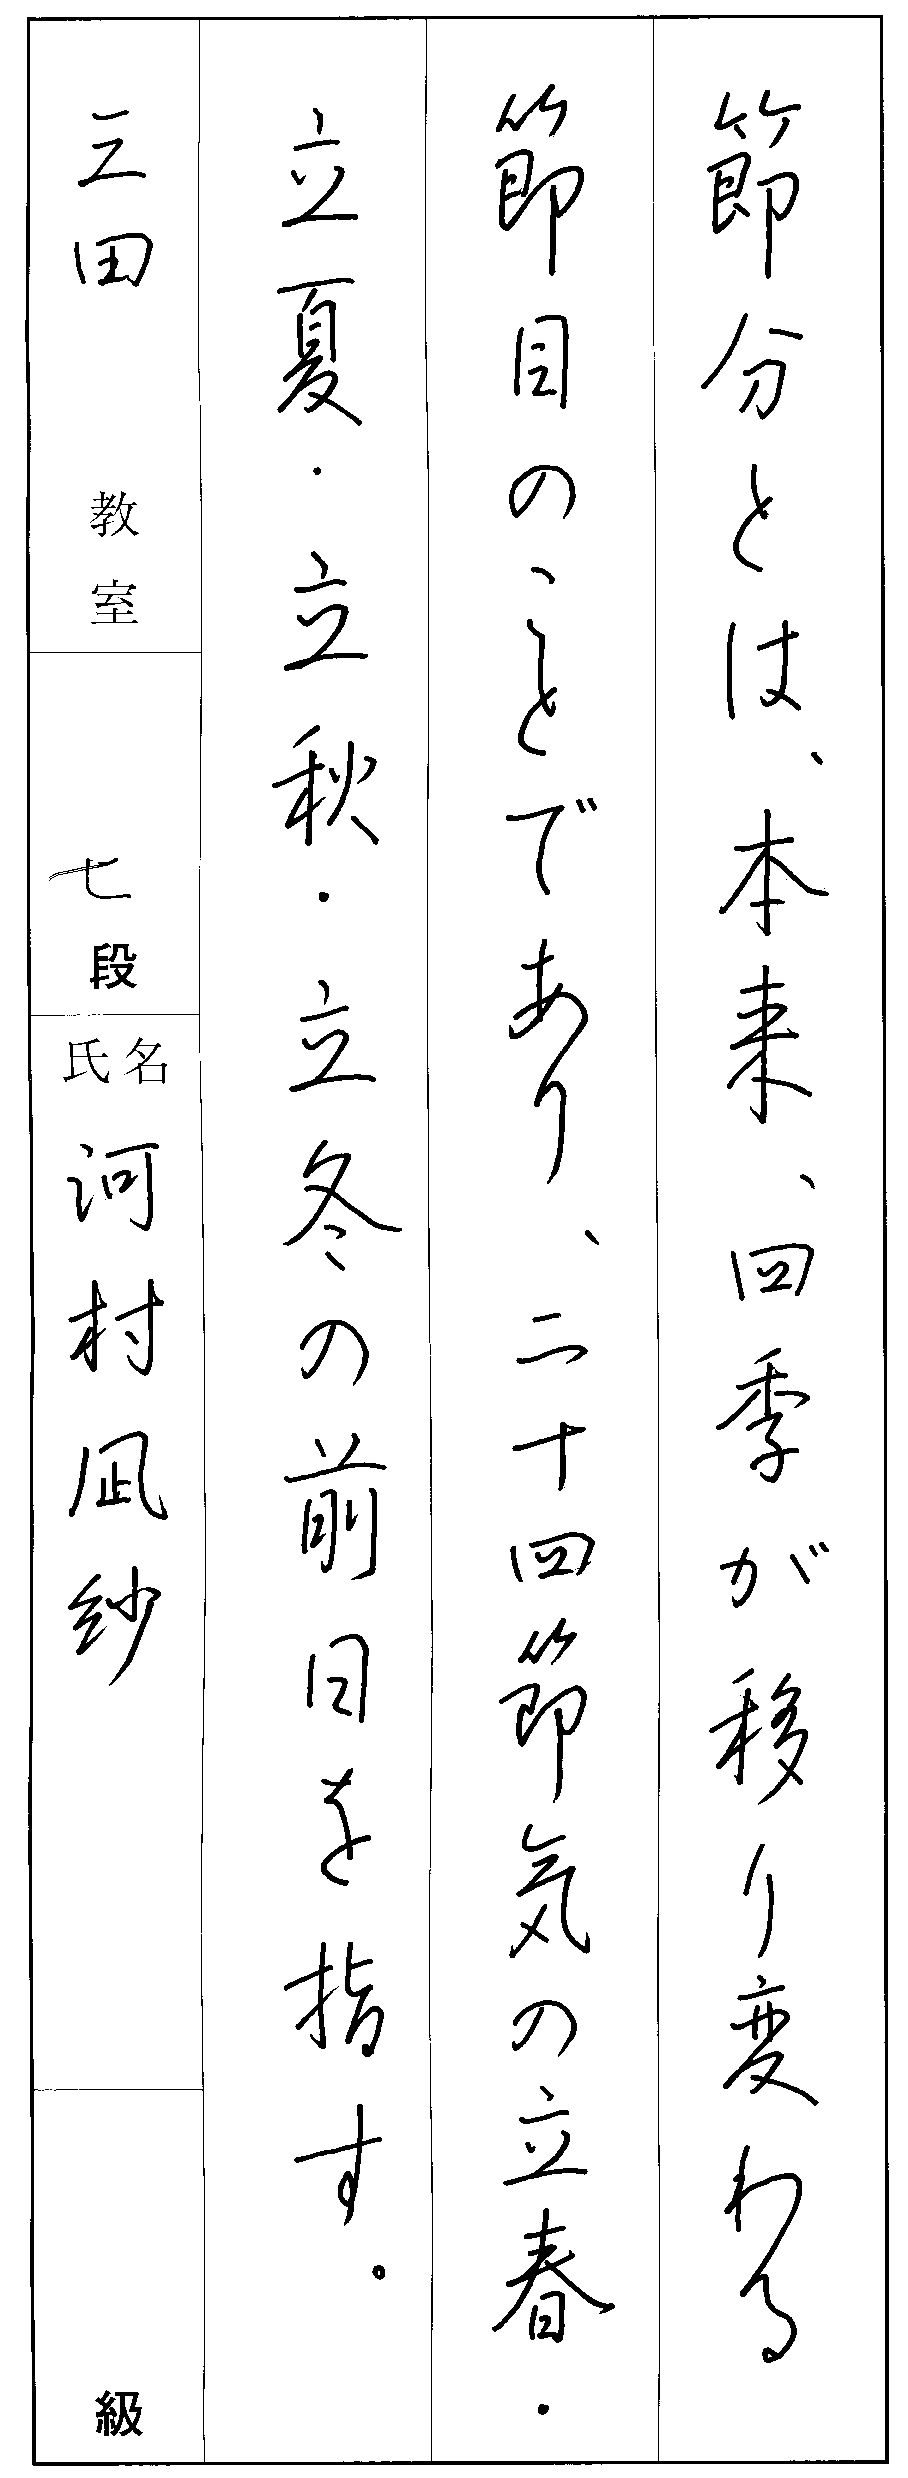 節分とは、本来、四季が移り変わる
節目のことであり、二十四節気の立春・
立夏・立秋・立冬の前日を指す。
三田 教室
七段
氏名
河村凪紗
級